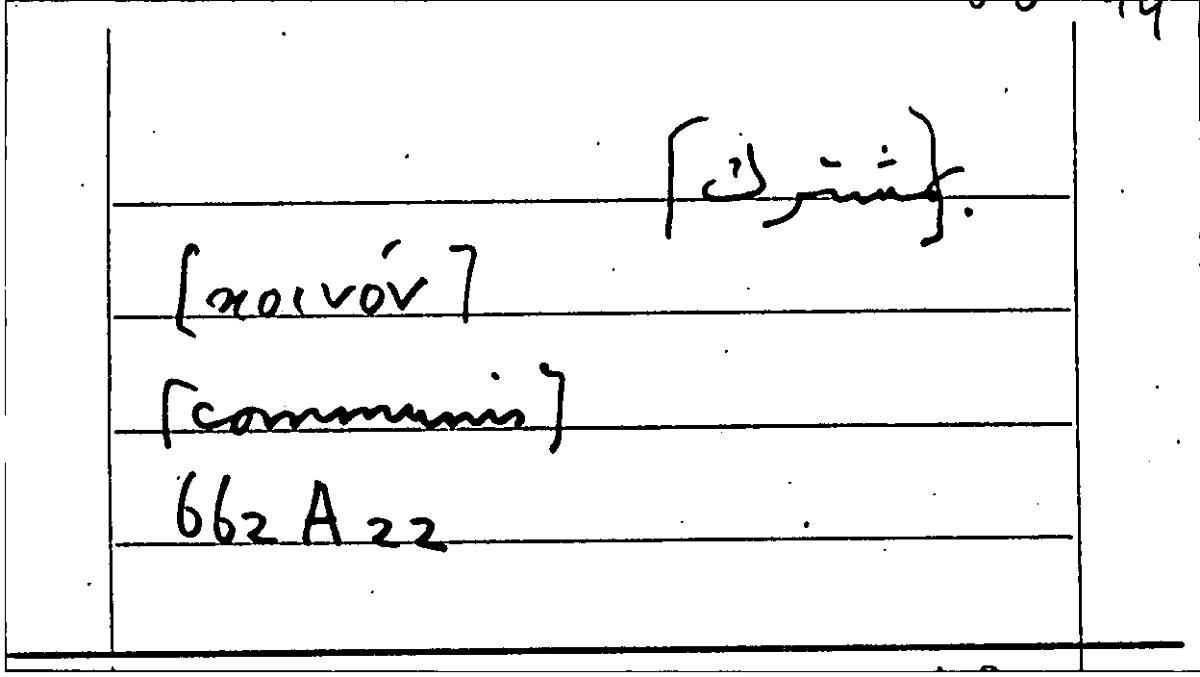 [مشترك].
[κοινόν]
[communis]
662 A 22